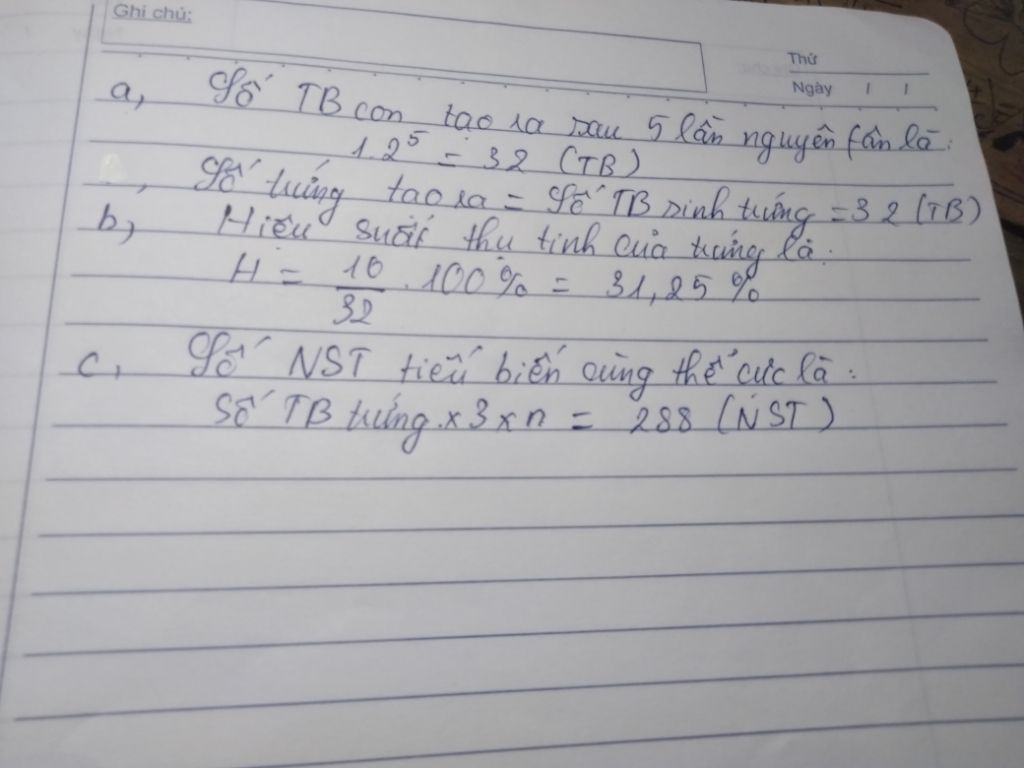 Ghi chú:
Thứ
Ngày / /
a, Số TB con tạo ra sau 5 lần nguyên fân là:
1.2⁵ = 32 (TB)
, Số trứng tạo ra = Số TB sinh trứng = 32 (TB)
b, Hiếu suất thụ tinh của trứng là:
H = 10/32 . 100% = 31,25 %
c, Số NST tiếu biến cùng thể cực là:
Số TB trứng x 3 x n = 288 (NST)